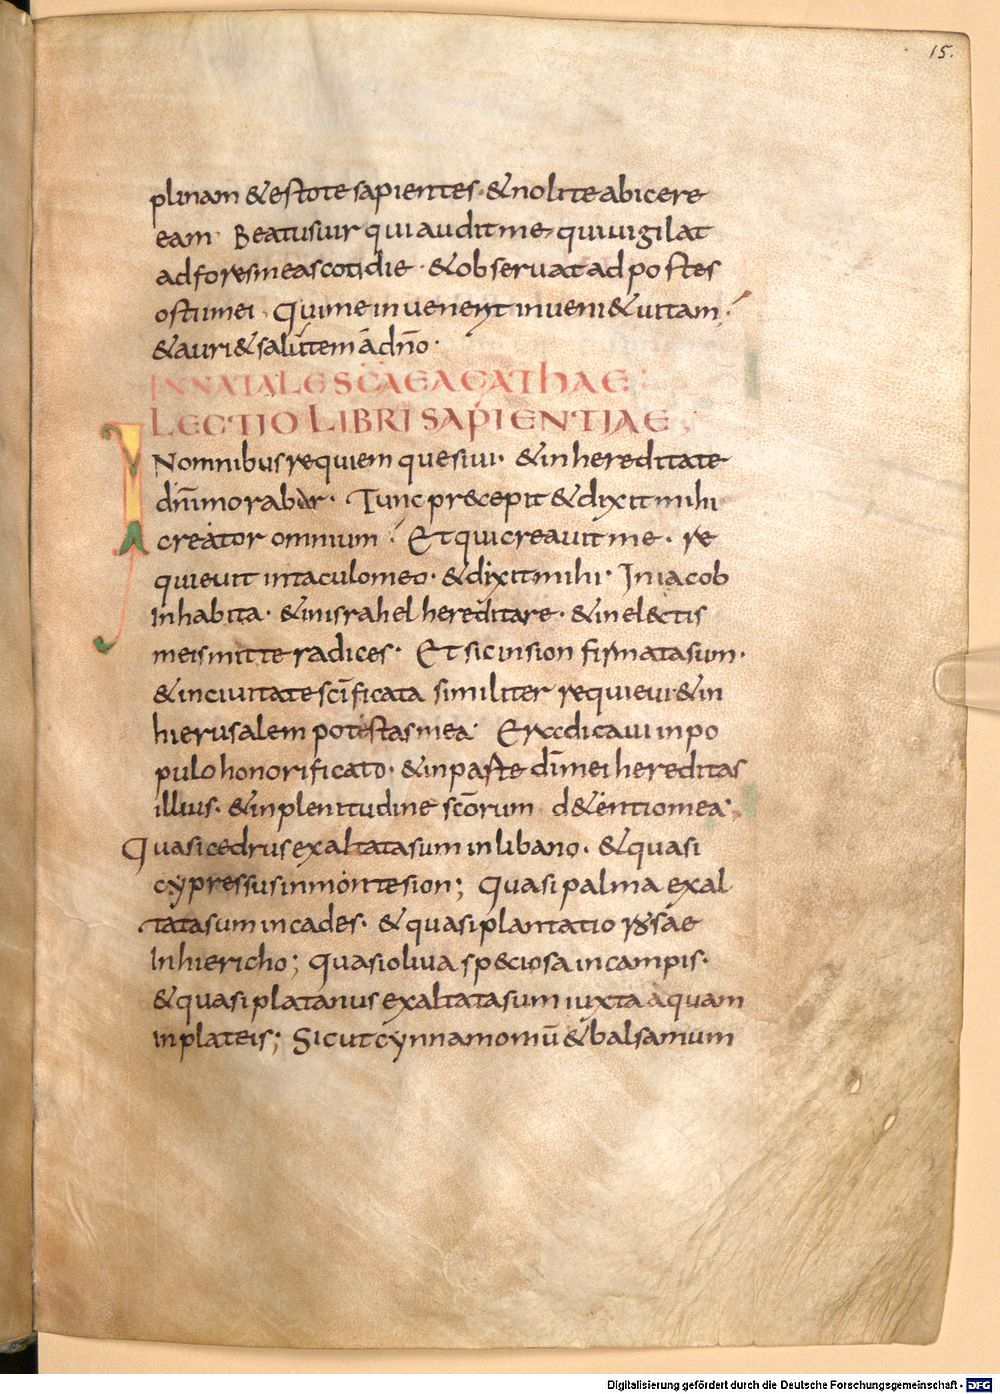 15.
plinam & estote sapientes · & nolite abicere
eam · Beatus uir qui audit me · qui uigilat
ad fores meas cotidie · & obseruat ad postes
ostii mei · Qui me inuenerit inueni& uitam ·
& auri& salutem a dn̄o ·
IN NATALE SC̄AE AGATHAE :
LECTIO LIBRI SAPIENTIAE ;
IN omnibus requiem quesiui · & in hereditate
dn̄i morabor · Tunc precepit & dixit mihi
creator omnium · Et qui creauit me · re
quieuit in taculo meo · & dixit mihi · In iacob
Inhabita · & in israhel hereditare · & in el&ctis
meis mitte radices · Et sic in sion firmata sum ·
& in ciuitate sc̄ificata similiter requieui & in
hierusalem potestas mea · Et radicaui in po
pulo honorificato · & in parte dī mei hereditas
illius · & in plenitudine sc̄orum d&entio mea ;
Quasi cedrus exaltata sum in libano · & quasi
cypressus in monte sion ; Quasi palma exal
tata sum in cades · & quasi plantatio rosae
In hiericho ; Quasi oliua sp&ciosa in campis ·
& quasi platanus exaltata sum iuxta aquam
in plateis ; Sicut cynnamomū & balsamum
Digitalisierung gefördert durch die Deutsche Forschungsgemeinschaft - DFG